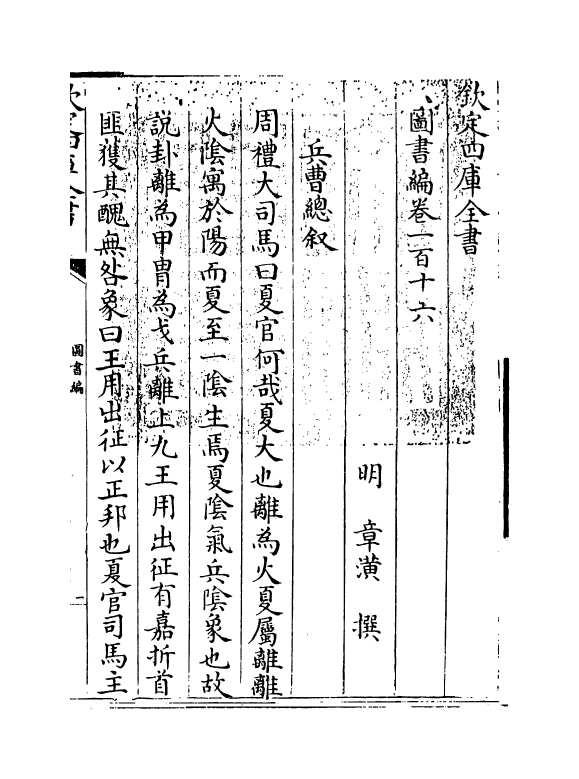 欽定四庫全書
圖書編卷一百十六
明 章潢 撰
兵曹總叙
周禮大司馬曰夏官何哉夏大也離為火夏屬離離
火陰寓於陽而夏至一陰生焉夏陰氣兵陰象也故
說卦離為甲冑為戈兵離上九王用出征有嘉折首
匪獲其醜無咎象曰王用出征以正邦也夏官司馬主
欽定四庫全書
圖書編
一